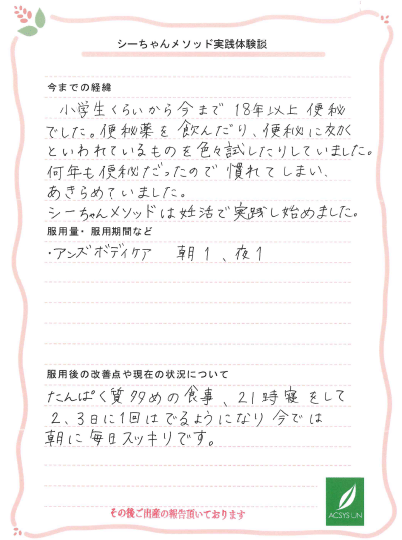 シーちゃんメソッド実践体験談
今までの経緯
小学生くらいから今まで 18年以上 便秘
でした。便秘薬を飲んだり、便秘に効く
といわれているものを色々試したりしていました。
何年も便秘だったので慣れてしまい、
あきらめていました。
シーちゃんメソッドは妊活で実践し始めました。
服用量・服用期間など
・アンズボディケア 朝1、夜1
服用後の改善点や現在の状況について
たんぱく質多めの食事、21時寝をして
2、3日に1回はでるようになり今では
朝に毎日スッキリです。
その後ご出産の報告頂いております
ACSYS UN